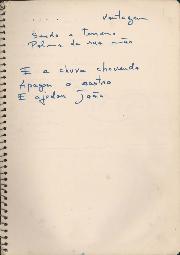 ... vantagem
Sendo o terreno
Palma da sua mão
E a chuva chovendo
Apagou o rastro
E ajudou João